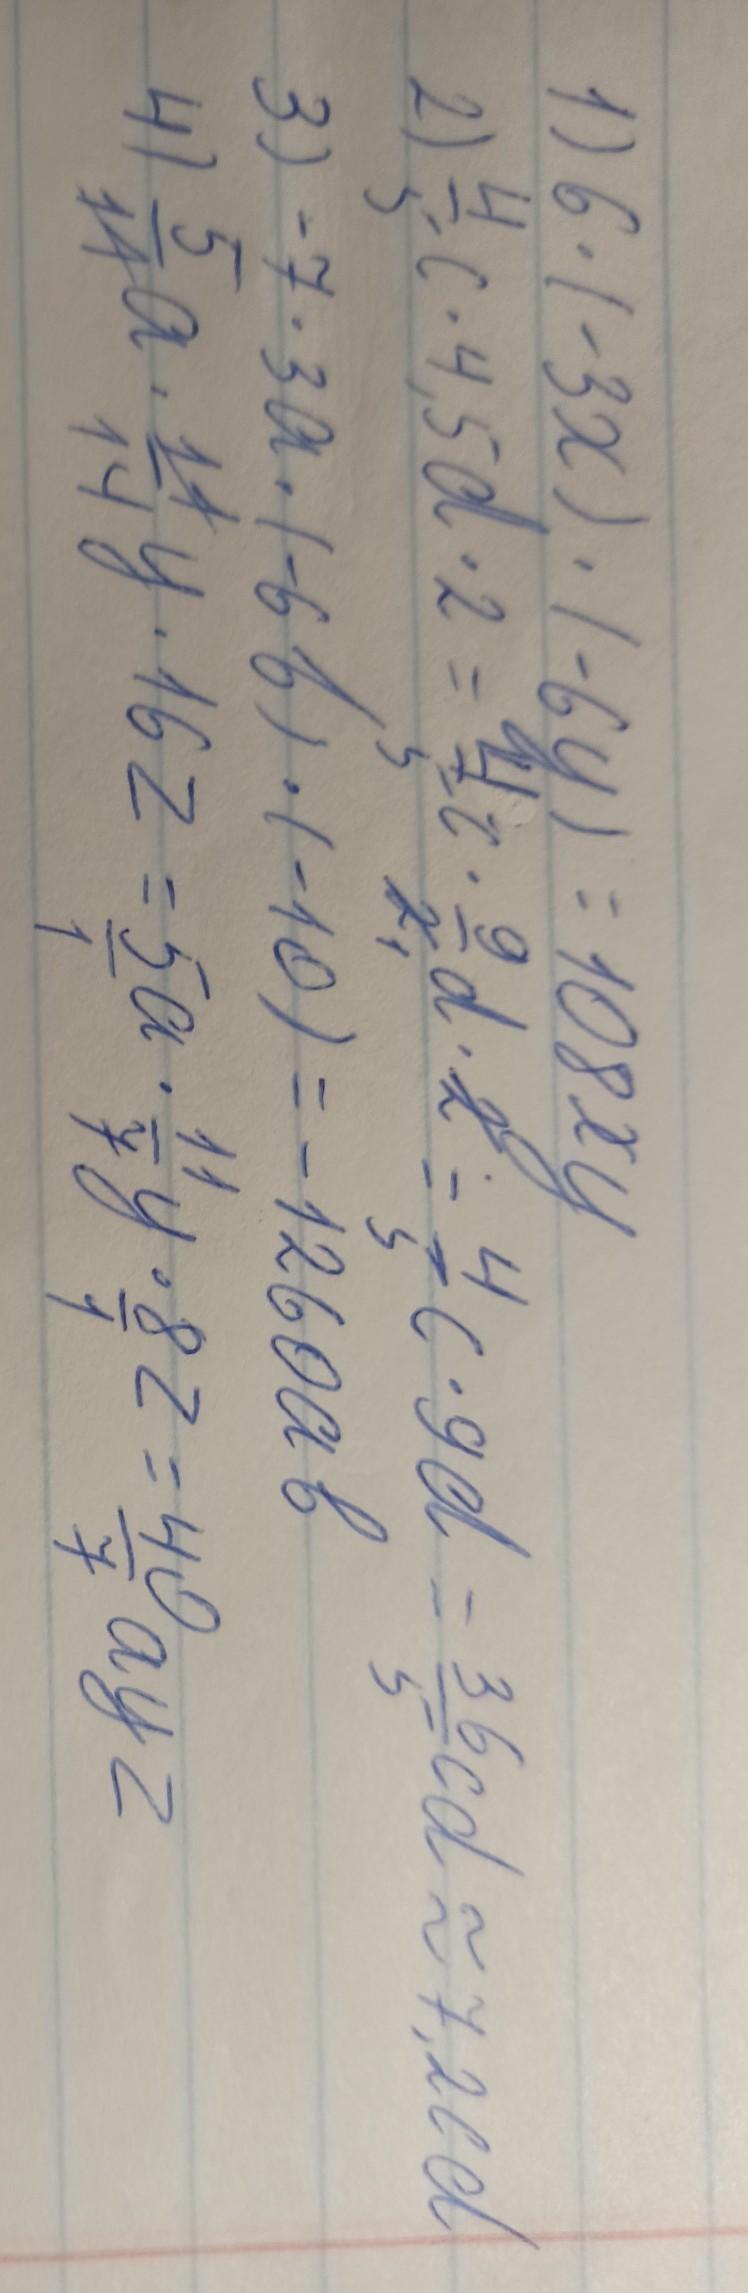 1) 6 · (-3x) · (-6y) = 108xy
2) 4/5 c · 4,5d · 2 = 4/5 c · 9/2 d · 2 = 4/5 c · 9d = 36/5 cd ≈ 7,2cd
3) -7 · 3a · (-6b) · (-10) = -1260ab
4) 5/11 a · 11/14 y · 16z = 5/1 a · 11/7 y · 8/1 z = 40/7 ayz